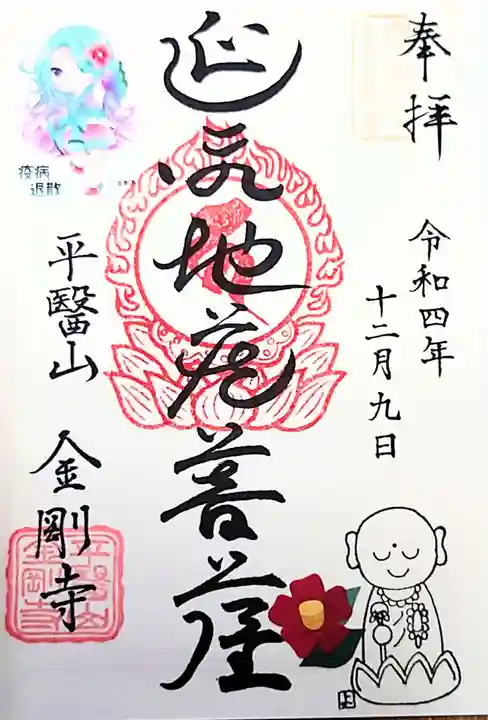 奉拝
令和四年
十二月九日
延命地蔵菩薩
疫病
退散
平醫山
金剛寺